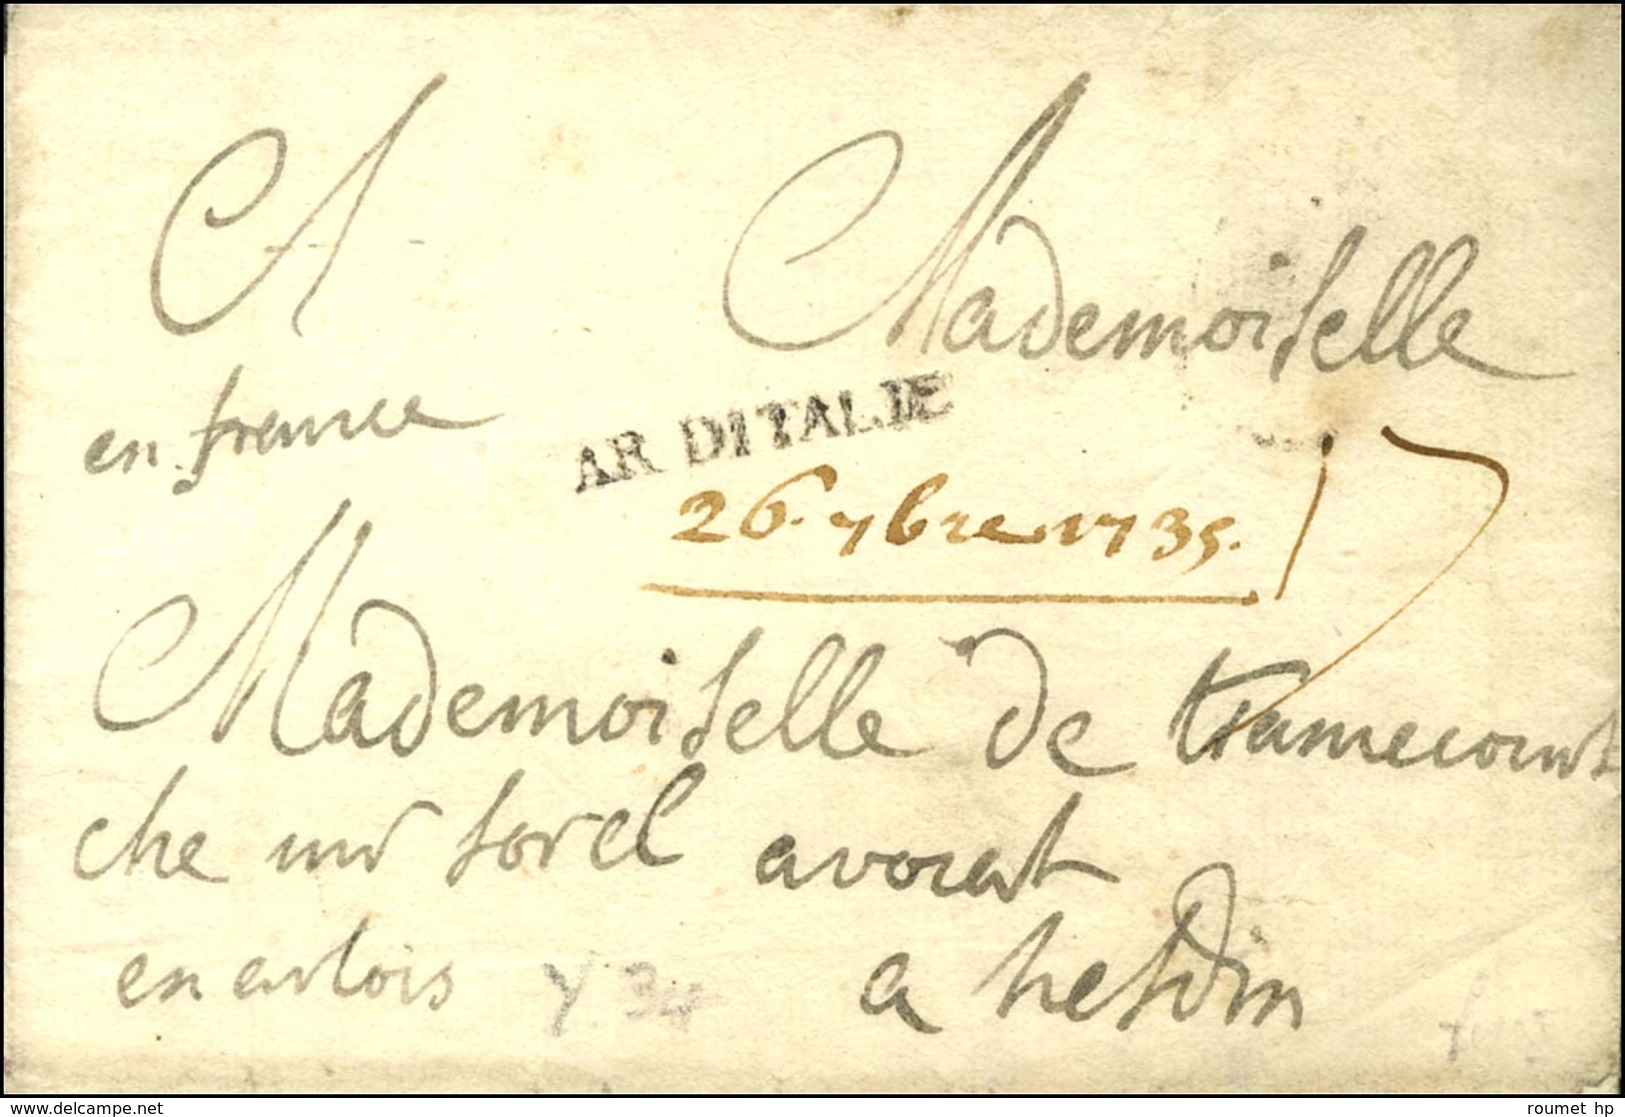 A Mademoiselle
en france
AR DITALIE
26. 7bre 1735. 17
Mademoiselle de tramecourt
che mr sorel avocat
en artois a hesdin
Y. 34
delcampe.net
roumet hp